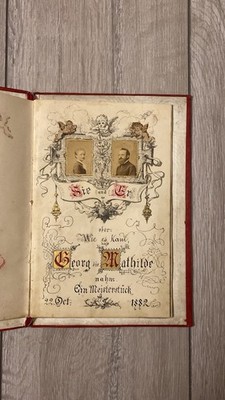 Sie und Er
oder:
Wie es kam
Georg die Mathilde
nahm
Ein Meisterstück
22. Oct. 1882